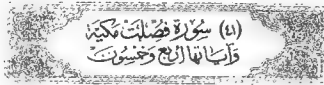 (٤١) سُورَة فُصِّلَتْ مَكِيَّة
وَآيَاتهَا أَرْبَع وَخَمْسُونَ